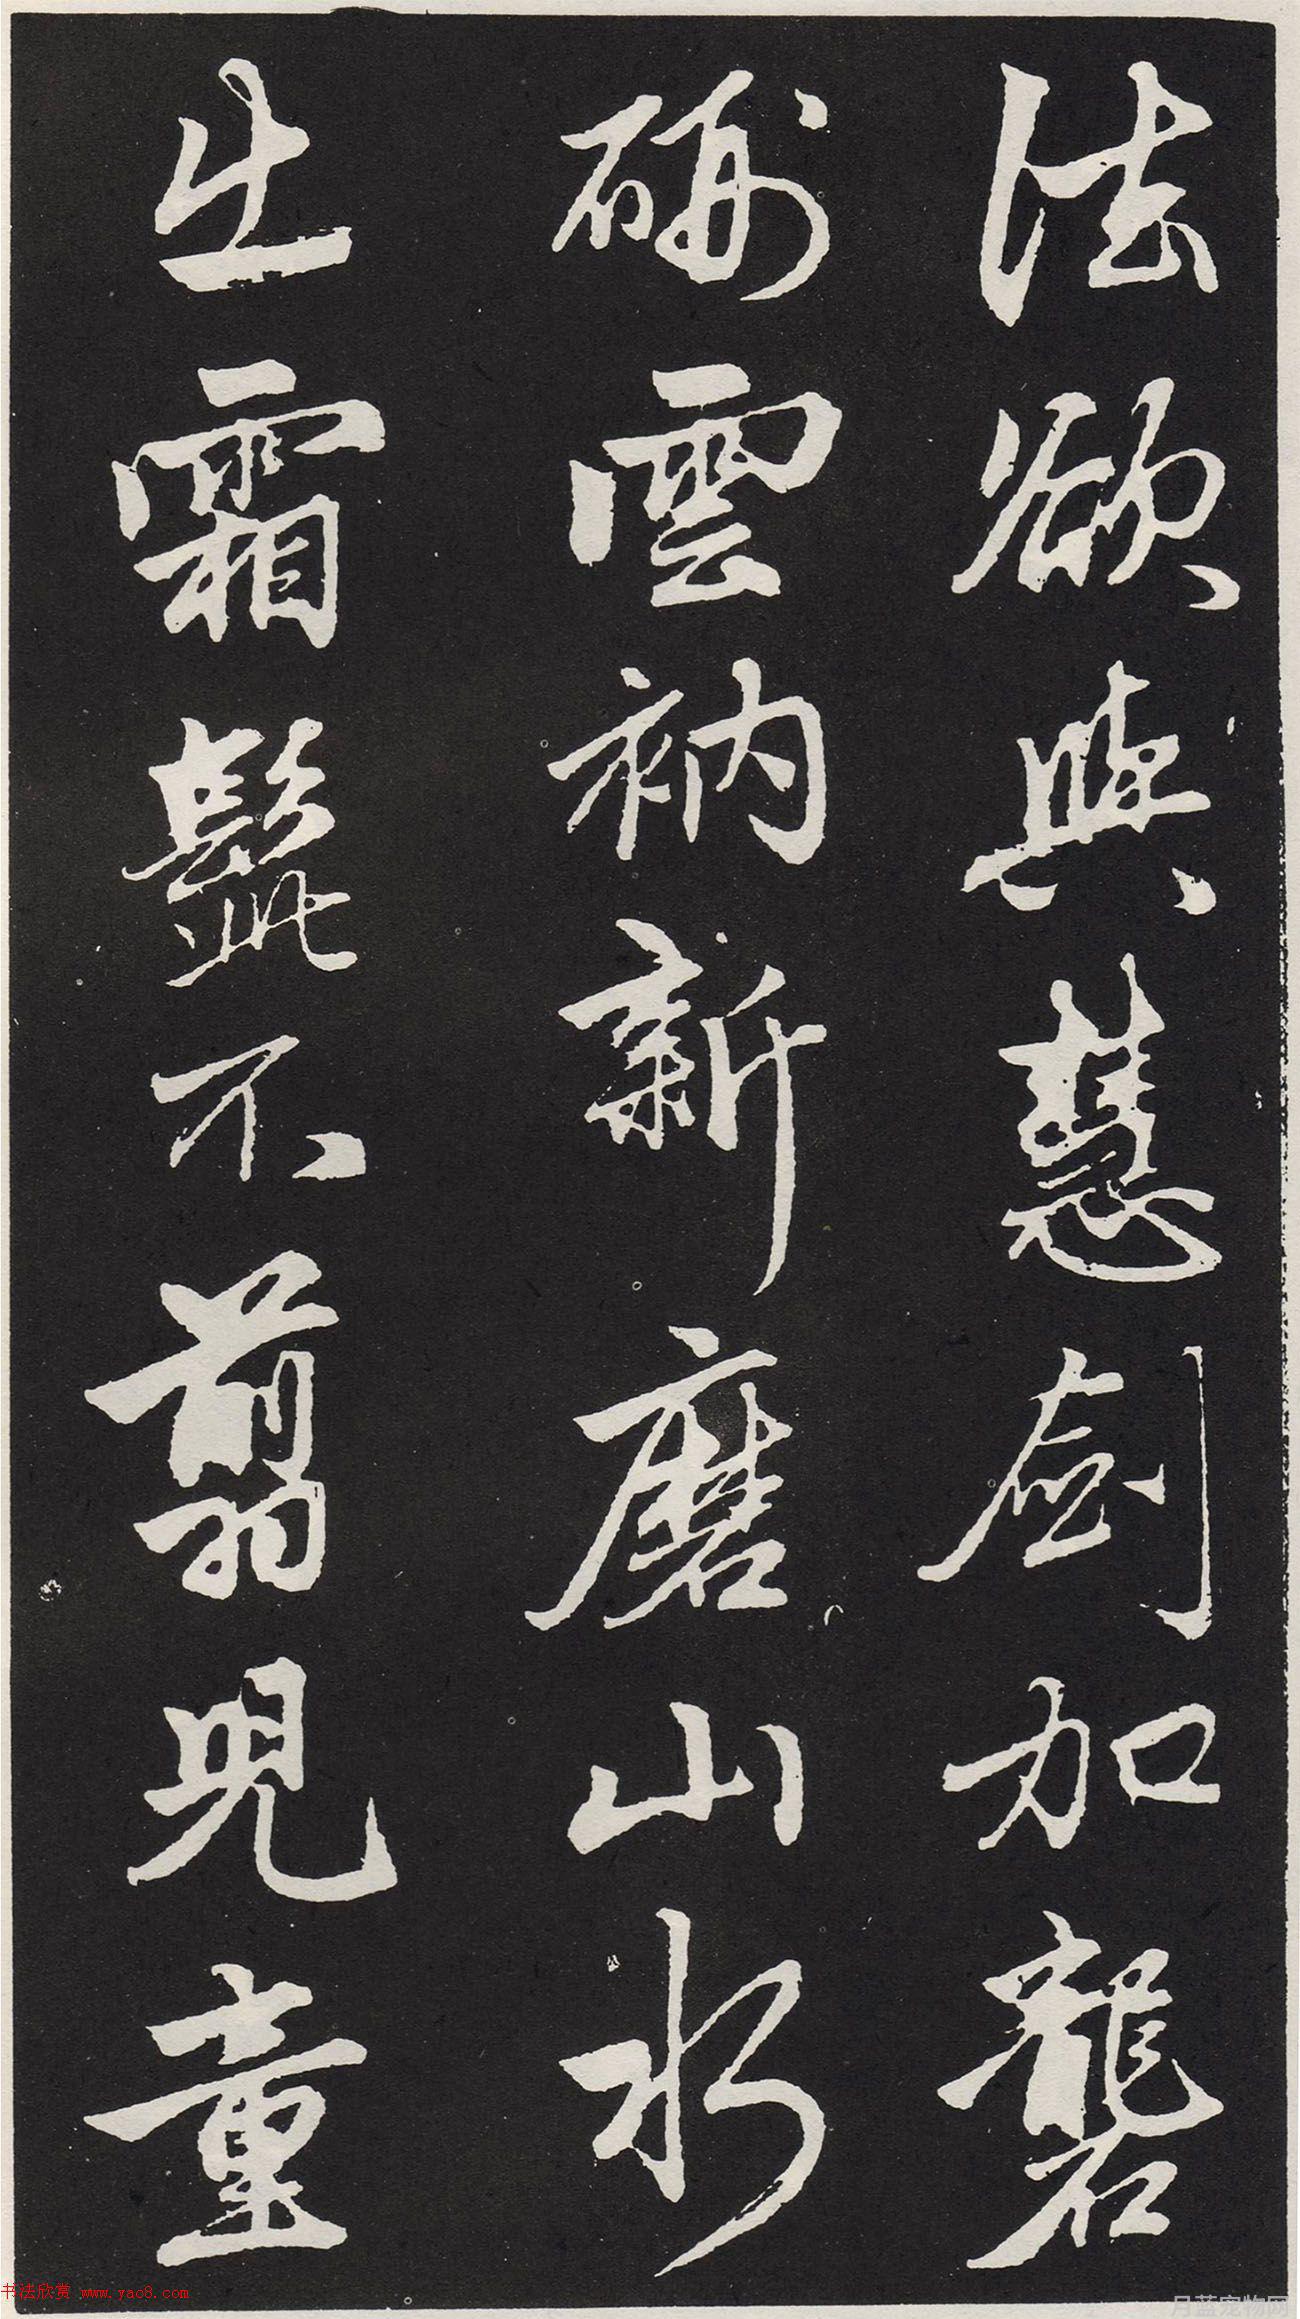 法欲與慧劍加礱
雲衲新磨山水
出霜髭不翦兒童
书法欣赏 www.yac8.com